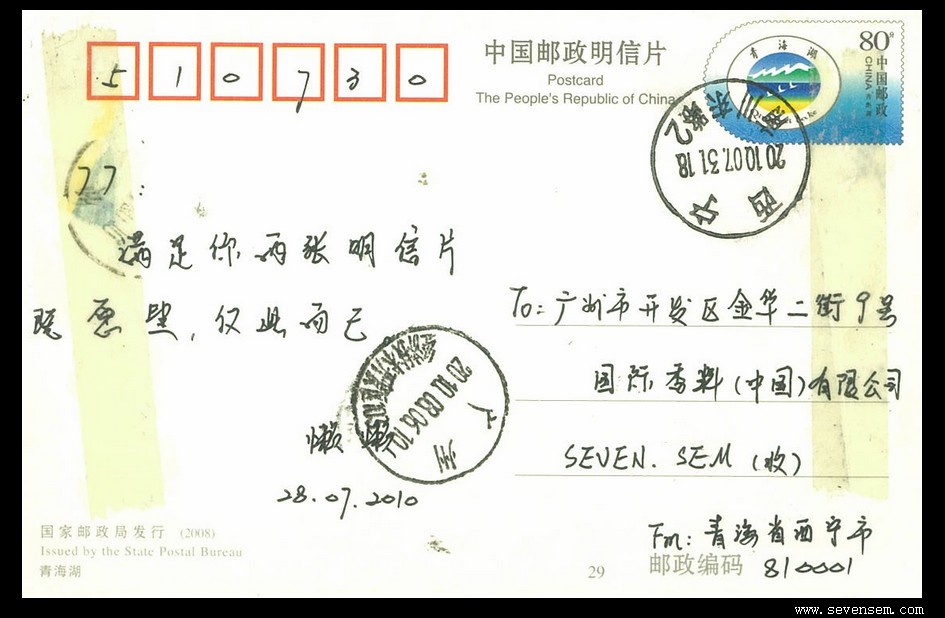 5 1 0 7 3 0
中国邮政明信片
Postcard
The People's Republic of China
80分
中国邮政
CHINA
青海湖
西宁
2010.07.31.18
77：
满足你两张明信片
愿望，仅此而已
懒懒
28.07.2010
广州
2010.08.06.10
To：广州市开发区金华二街9号
国际香料（中国）有限公司
SEVEN. SEM（收）
Fm：青海省西宁市
邮政编码 810001
国家邮政局发行 (2008)
Issued by the State Postal Bureau
青海湖
29
www.sevensem.com